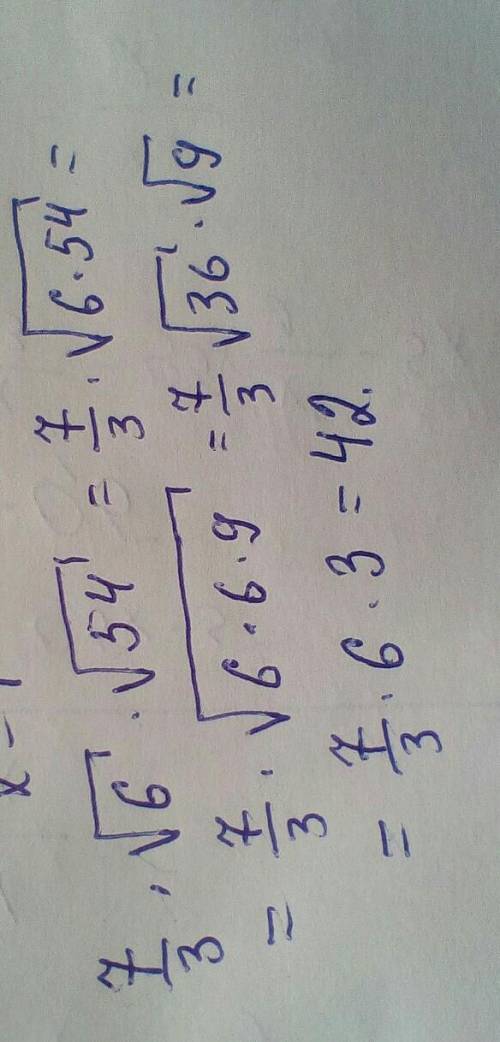 7/3 · √6 · √54 = 7/3 · √6·54 =
= 7/3 · √6·6·9 = 7/3 √36 · √9 =
= 7/3 · 6 · 3 = 42.